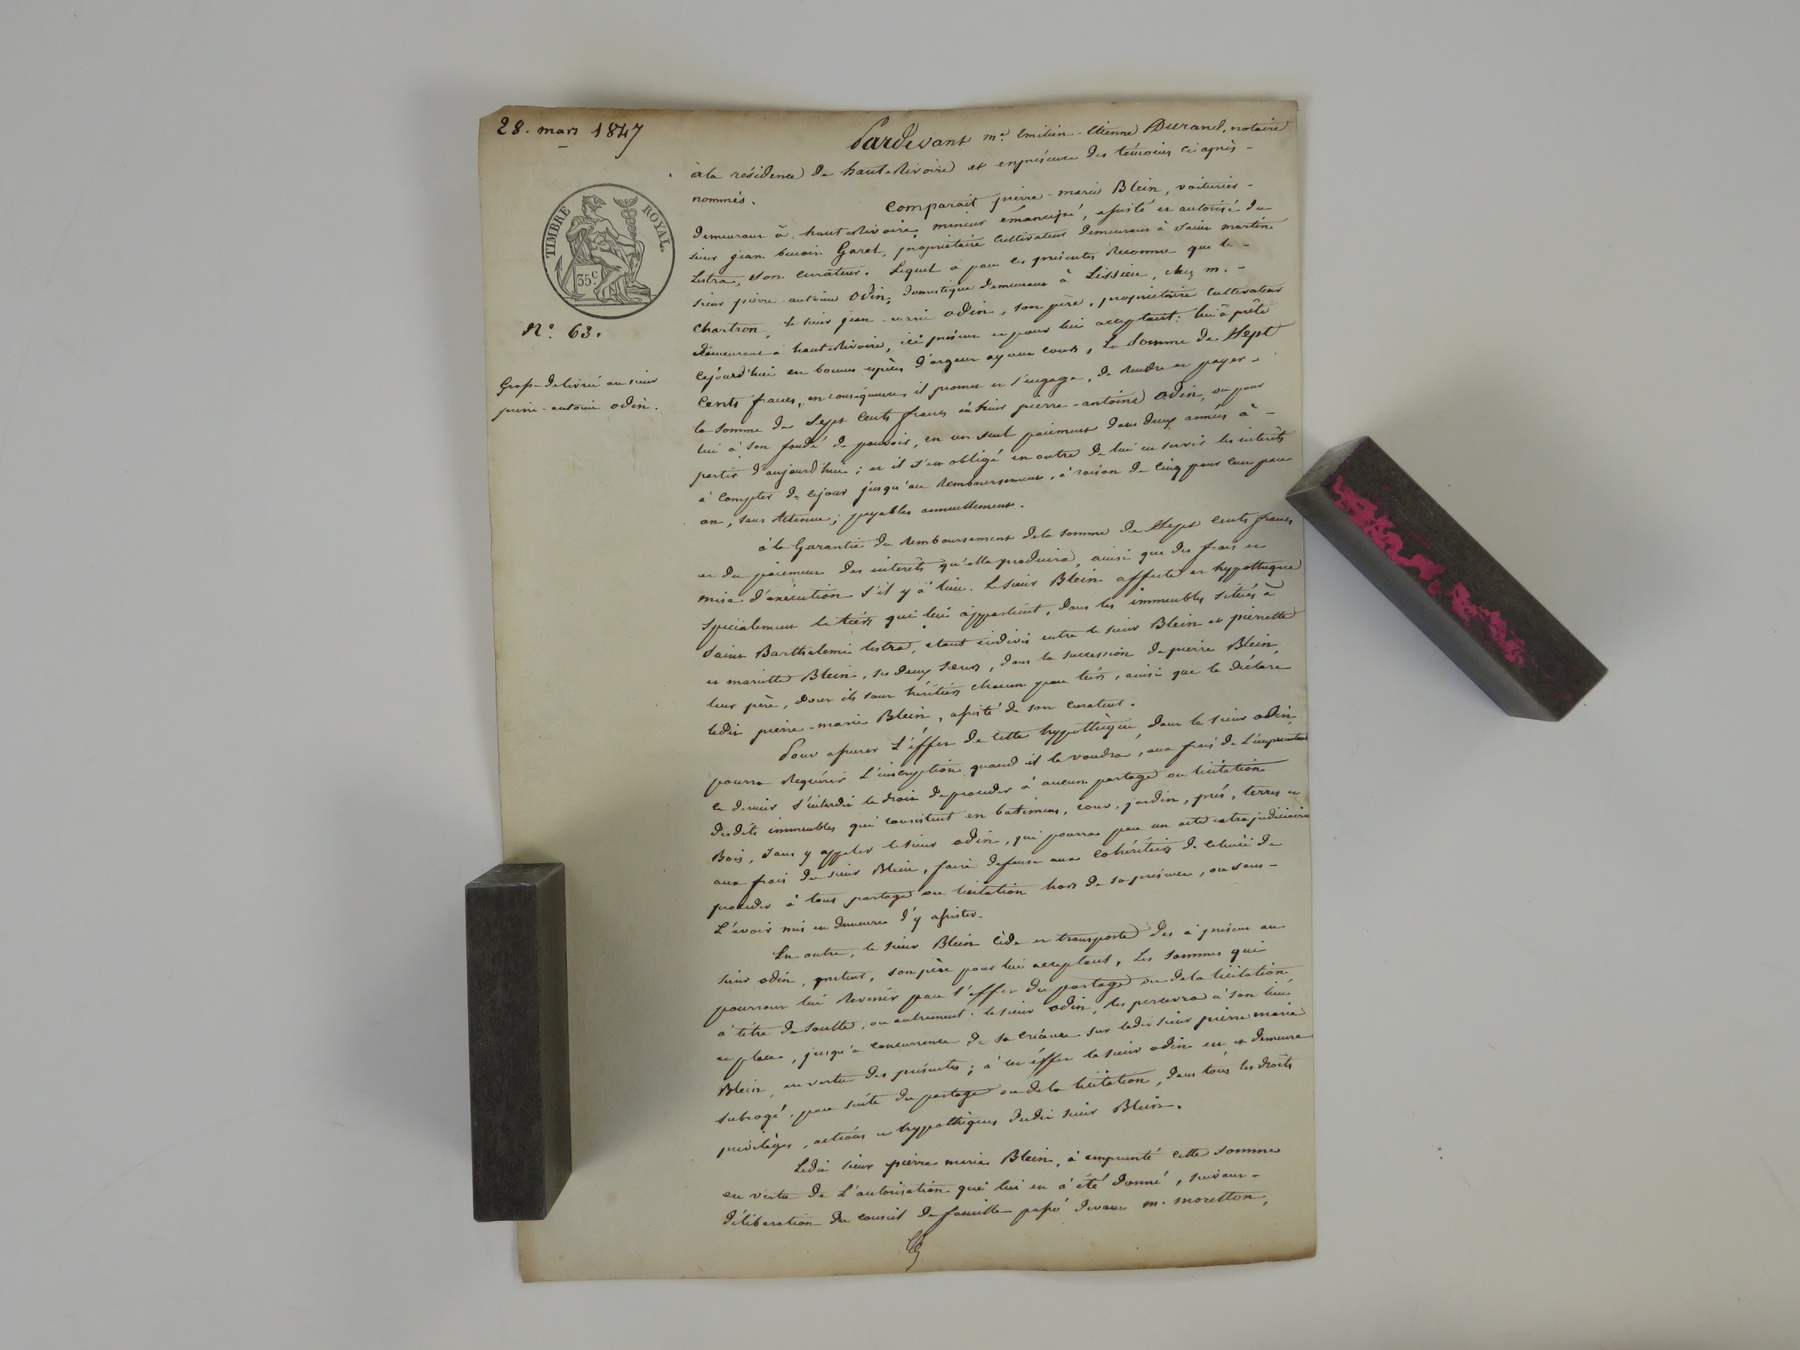 28. mars 1847
TIMBRE ROYAL.
35 c
N.º 63.
Grosse délivrée au sieur
pierre-antoine odin.
Pardevant me. Emilien-Etienne Durand, notaire
à la résidence de hauterivoire et en présence des témoins ci après-
nommés.
Comparait pierre-marie Blein, voiturier-
demeurant à hauterivoire, mineur émancipé, assisté et autorisé du
sieur jean Garel, propriétaire cultivateur demeurant à saint martin
Lestra, son curateur. Lequel a par ces présentes Reconnu que le-
sieur pierre-antoine odin, domestique demeurant à Lissieu, chez m.-
Chartron, le sieur jean-marie odin, son père, propriétaire cultivateur
demeurant à hauterivoire, ici présent et pour lui acceptant: lui à prêté
cejourd'hui en bonnes espèces d'argent ayant cours, La Somme de Sept
Cents francs, en conséquence il promet et s'engage, de Rendre et payer-
la somme de Sept Cents francs au sieur pierre-antoine odin, ou pour
lui à son fondé de pouvoir, en un seul paiement dans deux années à-
partir d'aujourd'hui; et il s'est obligé en outre de lui en servir les intérêts
à compter de cejour jusqu'au Remboursement, à raison de cinq pour cent par
an, sans Retenue; payables annuellement.
à la Garantie du Remboursement de la somme de Sept Cents francs
et du paiement des intérêts qu'elle produira, ainsi que des frais et
mise d'exécution s'il y a lieu. Le sieur Blein affecte et hypothèque
spécialement le tiers qui lui appartient, dans les immeubles situés à
Saint Barthelemi lestra, étant indivis entre le sieur Blein et pierrette
et mariette Blein, ses deux sœurs, dans la succession de pierre Blein,
leur père, dont ils sont héritiers chacun pour tiers, ainsi que le déclare
ledit pierre-marie Blein, assisté de son curateur.
Pour assurer l'éffet de cette hypothèque, dont le sieur odin,
pourra Requérir L'inscription quand il le voudra, aux frais de L'emprunteur
ce dernier s'interdit le droit de procéder à aucun partage ou licitation
desdits immeubles qui consistent en batimens, cour, jardin, prés, terres et
Bois, sans y appeler le sieur odin, qui pourra par un acte extrajudiciaire
aux frais du sieur Blein, faire defense aux cohéritiers de celui ci de
procéder à tous partage ou licitation hors de sa présence, ou sans-
L'avoir mis en demeure d'y assister.
En outre, le sieur Blein cède et transporte dès à présent au
sieur odin, preteur, son père pour lui acceptant, les sommes qui
pourront lui Revenir par l'effet du partage ou de la licitation,
à titre de soulte, ou autrement: le sieur odin, les percevra à son lieu
et place, jusqu'à concurrence de sa créance sur ledit sieur pierre marie
Blein, en vertu des présentes; à cet éffet le sieur odin est et demeure
subrogé, par suite du partage ou de la licitation, dans tous les droits
privilèges, actions et hypothèques dudit sieur Blein.
Ledit sieur pierre marie Blein, à emprunté cette somme
en vertu de L'autorisation qui lui en à été donné, suivant-
délibération du conseil de famille passé devant m. moretton,